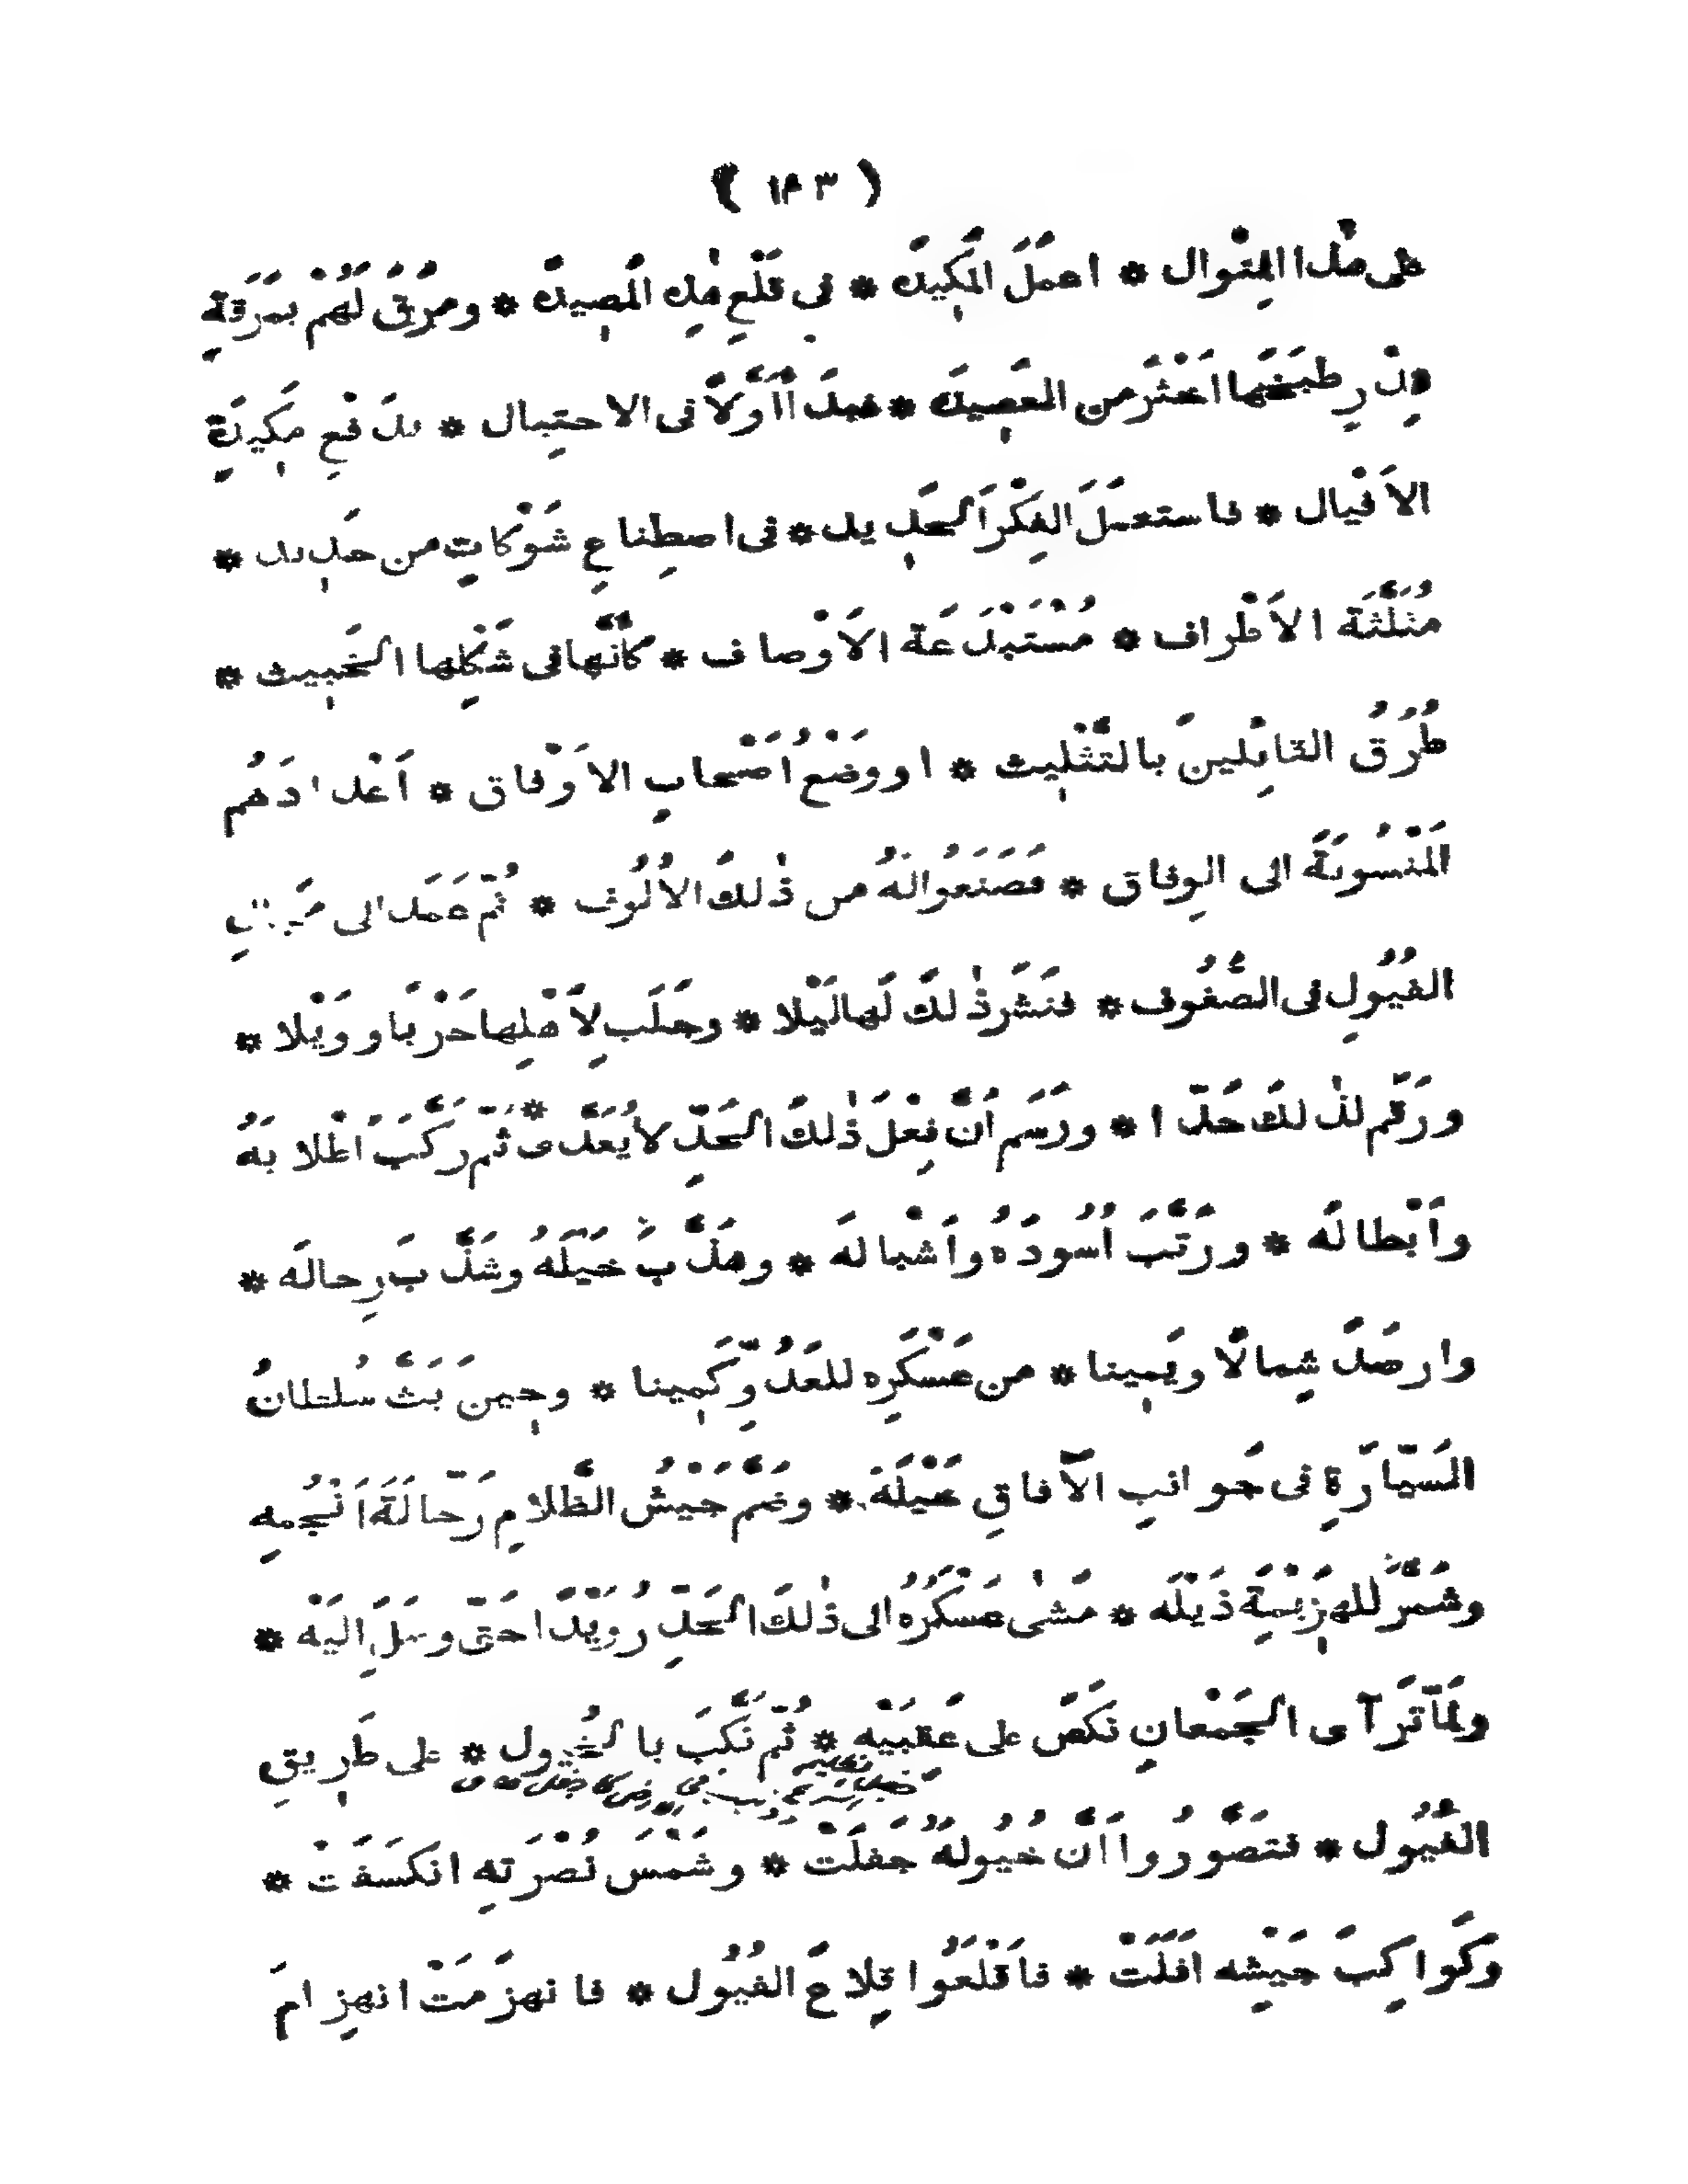 ( ١٤٣ )
على هٰذا المِنْوال * اعمَلَ المَكِيدَة * في قَلْعِ هٰذِهِ المَصِيدَة * ومَرَقَ لَهُمْ بمَرَقَةٍ
قِدْرٍ طبَخَها اَخْثَرَ من العَصِيدَة * فبدَأ اَوَّلًا فى الاحتِيال * بدَفْعِ مَكِيدَةِ
الاَفيال * فاستعمَلَ الفِكْرَ الحَدِيد * فى اصطِناعِ شَوْكاتٍ من حَدِيد *
مُثَلَّثَة الاَطْراف * مُسْتَبْدَعَة الاَوْصاف * كأنَّها فى شَكْلِها الخَبِيث *
طُرُق القائِلينَ بالتَّثْلِيث * او وَضْعُ اَصْحابِ الاَوْفاق * اَعْدادَهُم
المَنْسُوبَةَ الى الوِفاق * فصَنَعُوا لَهُ من ذٰلكَ الاُلُوف * ثُمّ عَمَدَ الى
الفُيُولِ فى الصُّفُوف * فنَشَر ذٰلكَ لَها لَيْلا * وجَلَب لِاَهْلِها حَرْبًا ووَيْلا *
ورَقَم لذٰلكَ حَدّا * ورَسَم اَنَّ فِعْلَ ذٰلكَ الحَدِّ لا يُعَدَّى * ثمّ ركَّبَ اَطْلابَهُ
واَبْطالَه * ورَتَّبَ اُسُودَهُ واَشْبالَه * وهَذَّبَ خَيْلَهُ وشَذَّبَ رِحالَه *
وارصَدَ شِمالًا ويَمِينا * من عَسْكَرِه للعَدُوِّ كَمِينا * وحِين بَثَّ سُلطانُ
السَيّارَةِ فى جَوانبِ الآفاقِ خَيْلَهُ * وضَمَّ جَيْشُ الظَّلامِ رَحّالَةَ اَنْجُمِهِ
وشَمَّرَ للهَزِيْمَةِ ذَيْلَه * مَشٰى عَسْكَرُهُ الى ذٰلكَ الحَدِّ رُوَيْدًا حَتّى وصَلَ اِلَيْه *
ولَمّا تَرَآى الجَمْعانِ نَكَصَ على عَقِبَيْه * ثُمّ نَكَّبَ بالخُيُول * على طَرِيقِ
الفُيُول * فتَصَوَّرُوا اَنَّ خُيُولَهُ جَفَلَتْ * وشَمْسَ نُصْرَتِهِ انكَسَفَتْ *
وكَواكِبَ جَيْشِه اَفَلَتْ * فاَقْلَعُوا قِلاعَ الفُيُول * فانهزَمَتْ انهِزامَ